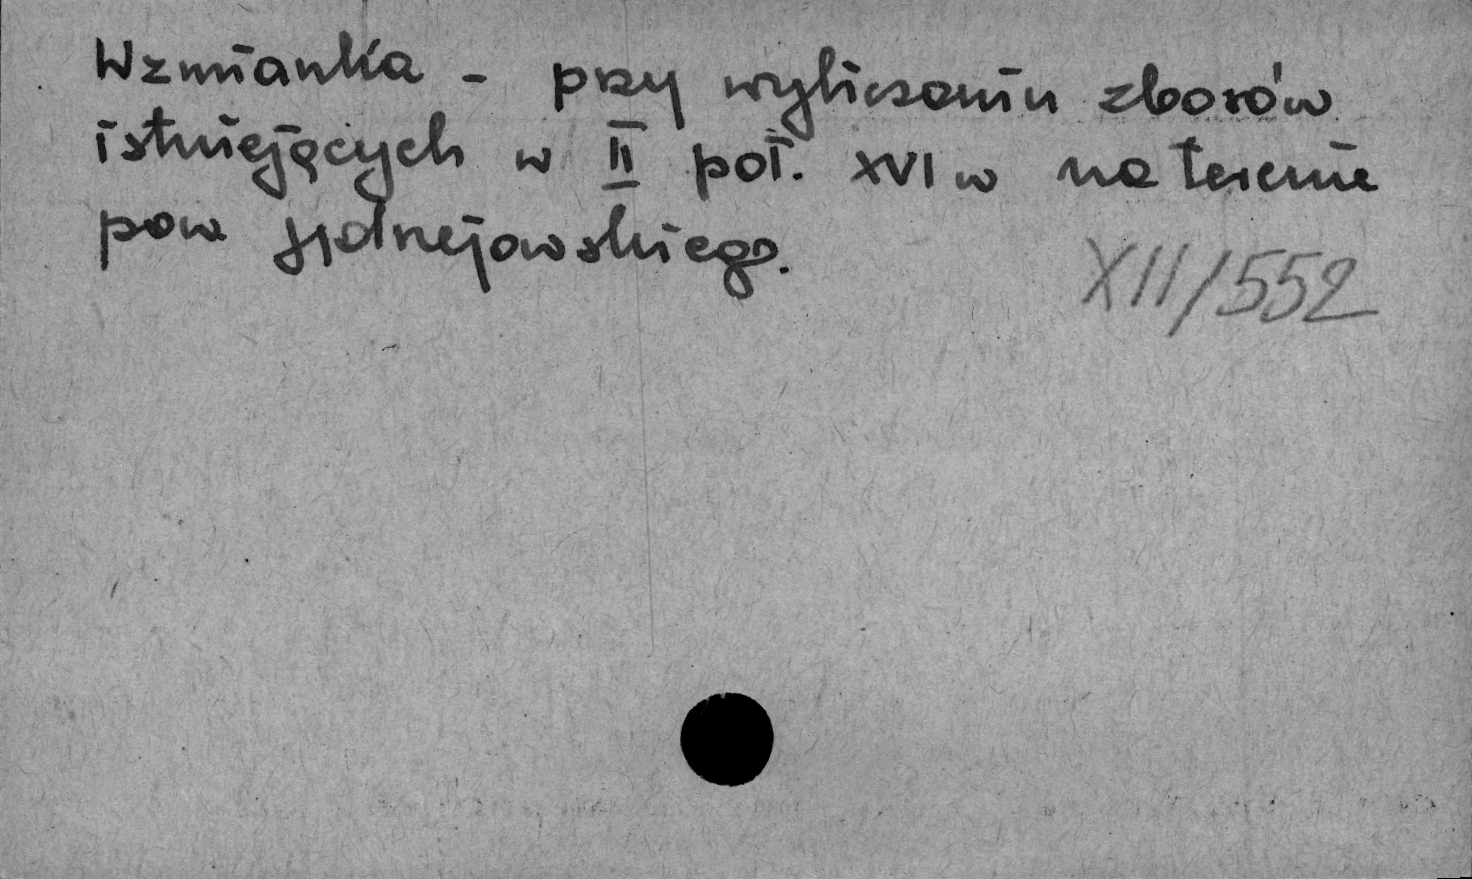 Wzmianka - przy wyliczaniu zborów
istniejących w II poł. XVI w na terenie
pow jędrzejowskiego.
XII/552